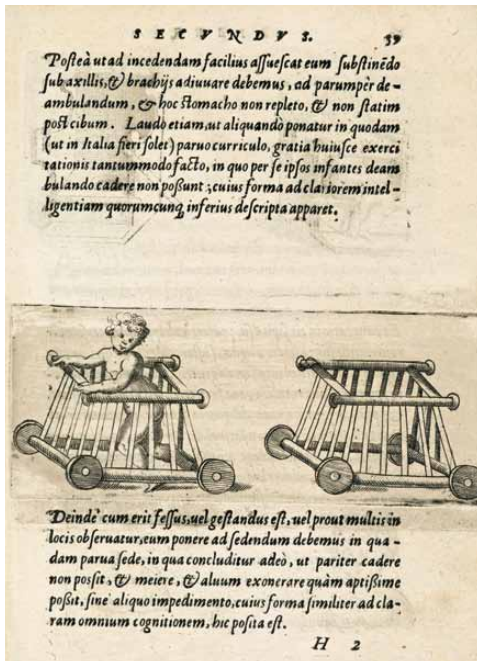 SECVNDVS. 59
Posteà ut ad incedendam facilius assuescat eum substinẽdo
sub axillis, & brachijs adiuuare debemus, ad parumpèr de-
ambulandum, & hoc stomacho non repleto, & non statim
post cibum. Laudo etiam, ut aliquandò ponatur in quodam
(ut in Italia fieri solet) paruo curriculo, gratia huiusce exerci
tationis tantummodo facto, in quo per se ipsos infantes deam
bulando cadere non possunt; cuius forma ad clariorem intel-
ligentiam quorumcunq; inferius descripta apparet.
Deindè cum erit fessus, uel gestandus est, uel prout multis in
locis obseruatur, eum ponere ad sedendum debemus in qua-
dam parua sede, in qua concluditur adeò, ut pariter cadere
non possit, & meiere, & aluum exonerare quàm aptissime
possit, sine aliquo impedimento, cuius forma similiter ad cla-
ram omnium cognitionem, hic posita est.
H 2